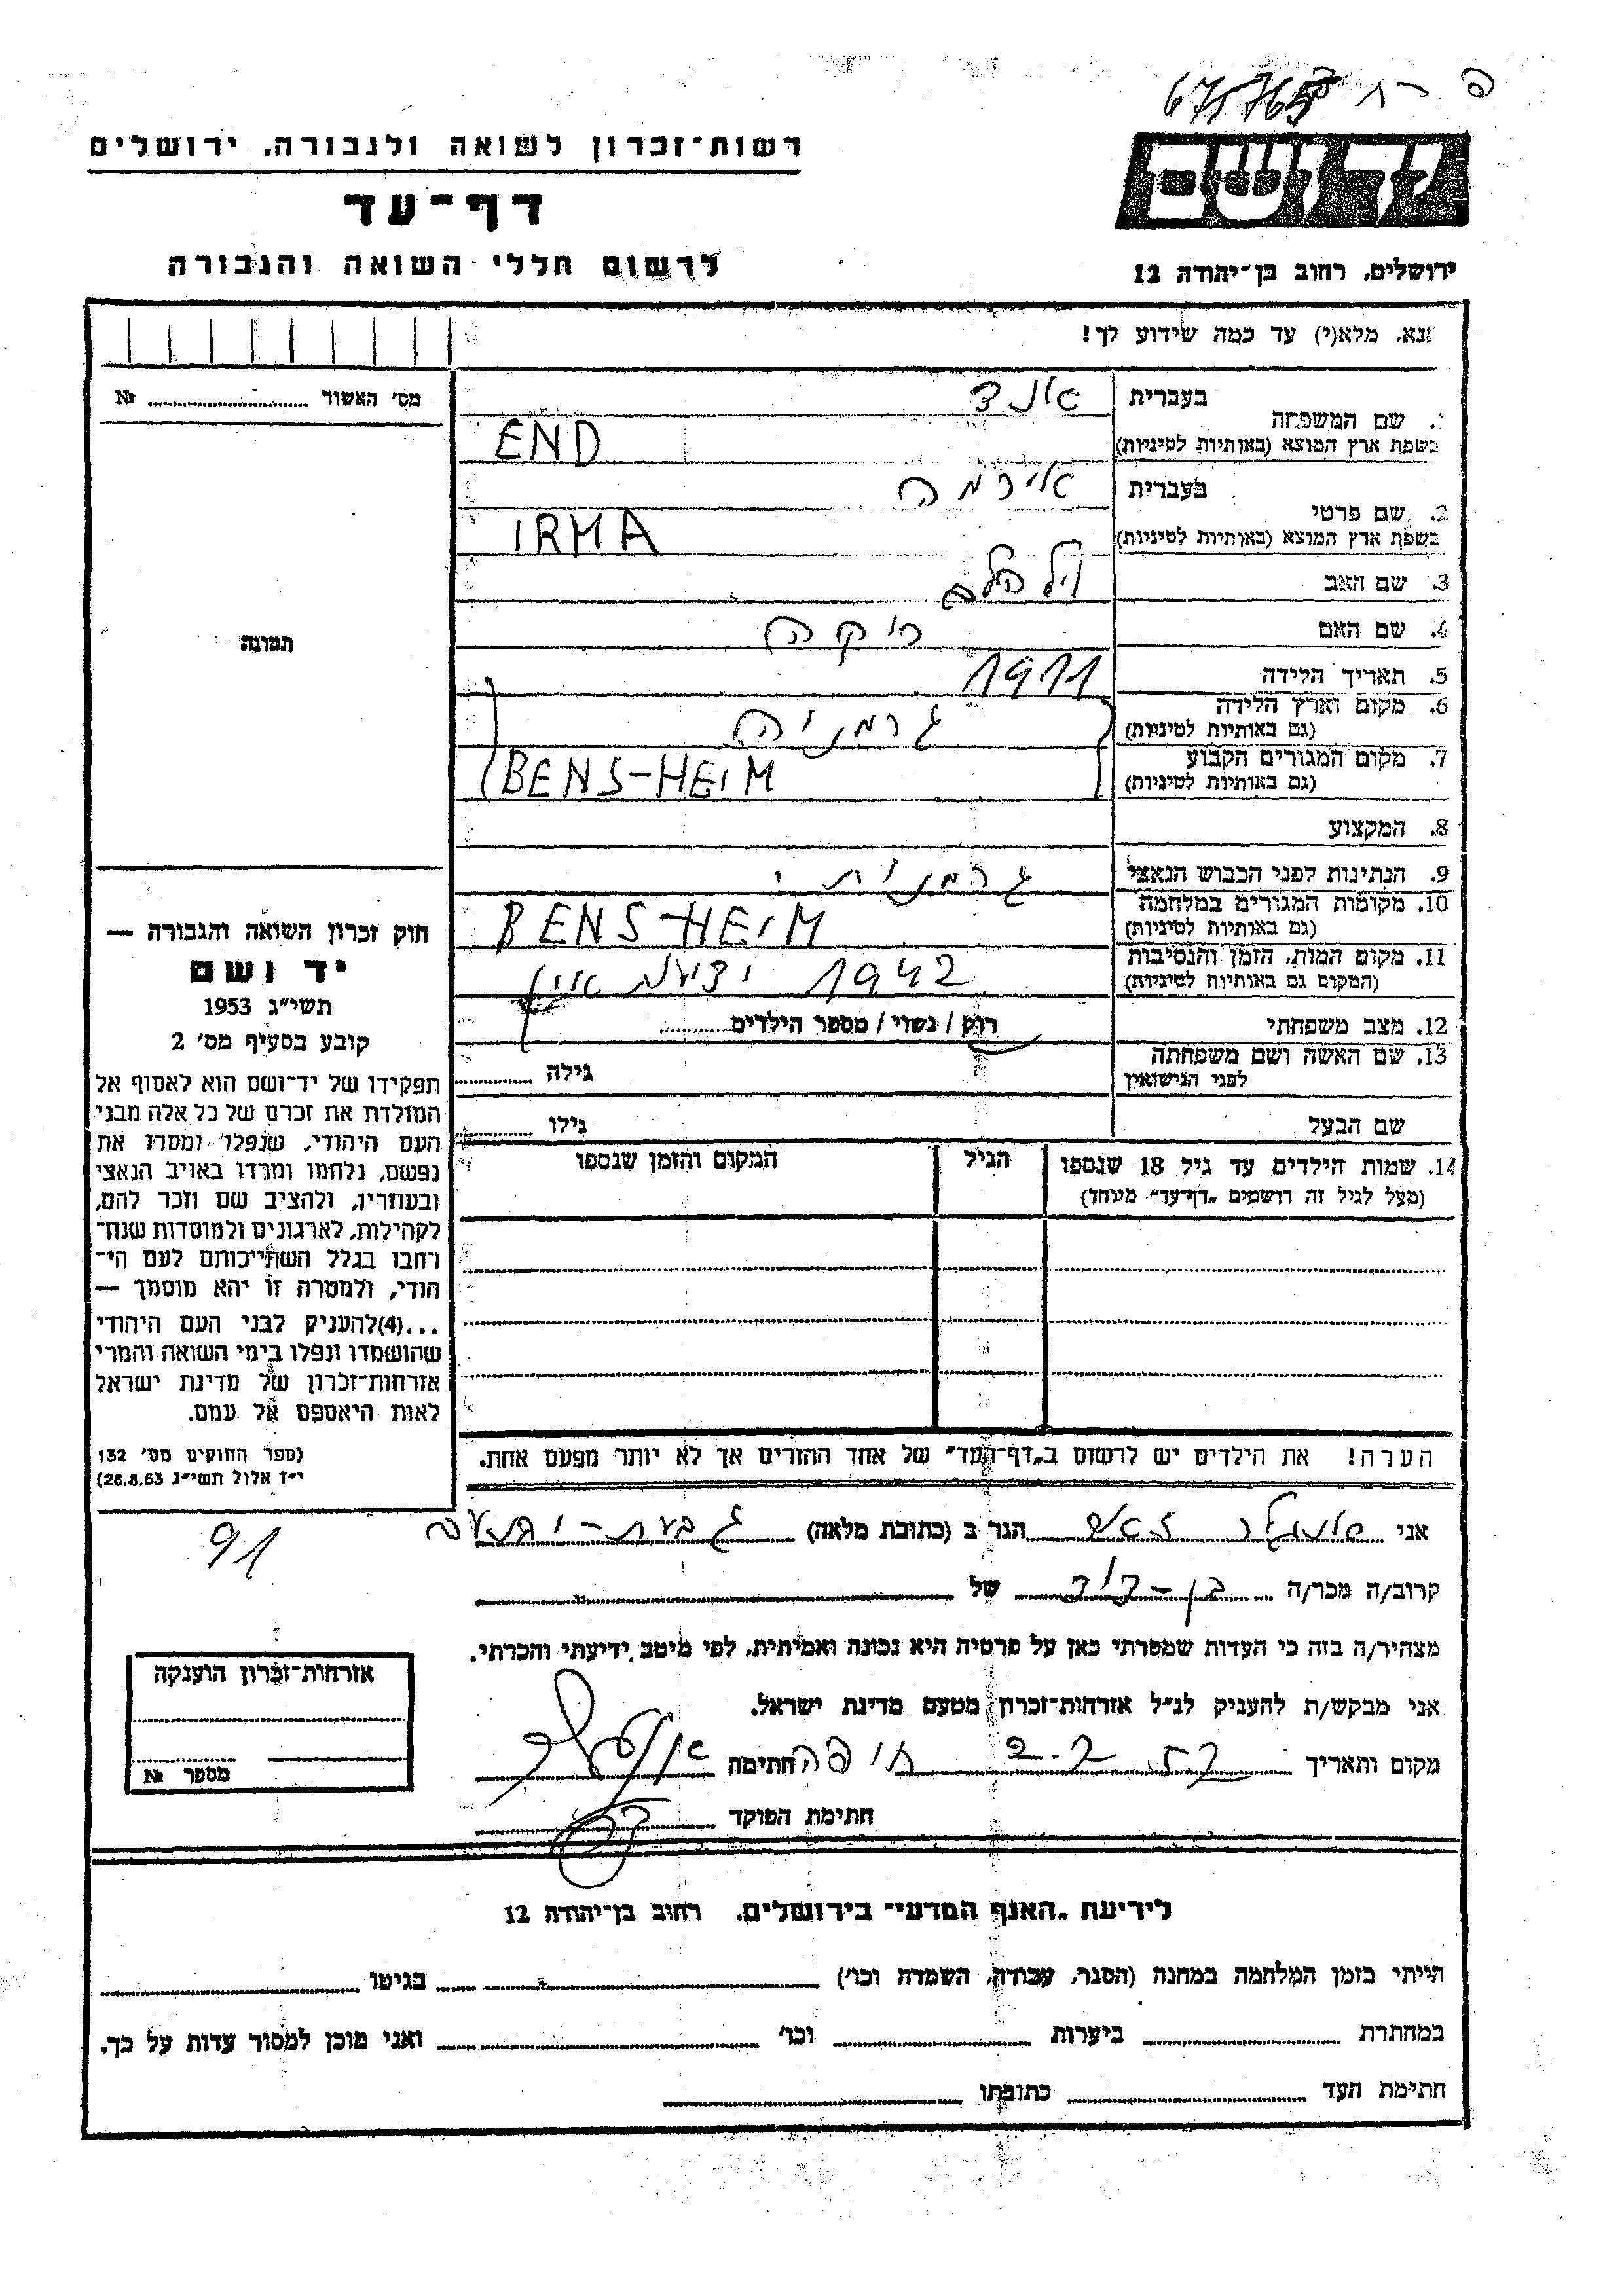 67/765
רשות-זכרון לשואה ולגבורה, ירושלים
יד ושם
דף-עד
לרשום חללי השואה והגבורה
ירושלים, רחוב בן-יהודה 12
נא, מלא(י) עד כמה שידוע לך!
מס' האשור № 
1. שם המשפחה בעברית אנד
בשפת ארץ המוצא (באותיות לטיניות) END
2. שם פרטי בעברית אירמה
בשפת ארץ המוצא (באותיות לטיניות) IRMA
3. שם האב וילהלם
4. שם האם ריקה
תמונה
5. תאריך הלידה 1911
6. מקום וארץ הלידה גרמניה
(גם באותיות לטיניות)
7. מקום המגורים הקבוע BENS-HEIM
(גם באותיות לטיניות)
8. המקצוע
9. הנתינות לפני הכבוש הנאצי גרמנית
10. מקומות המגורים במלחמה BENS-HEIM
(גם באותיות לטיניות)
11. מקום המות, הזמן והנסיבות 1942 ידיעות אין
(המקום גם באותיות לטיניות)
12. מצב משפחתי רוק / נשוי / מספר הילדים
13. שם האשה ושם משפחתה גילה
לפני הנישואין
שם הבעל גילו
14. שמות הילדים עד גיל 18 שנספו הגיל המקום והזמן שנספו
(מעל לגיל זה רושמים "דף-עד" מיוחד)
חוק זכרון השואה והגבורה —
יד ושם
תשי"ג 1953
קובע בסעיף מס' 2
תפקידו של יד-ושם הוא לאסוף אל
המולדת את זכרם של כל אלה מבני
העם היהודי, שנפלו ומסרו את
נפשם, נלחמו ומרדו באויב הנאצי
ובעוזריו, ולהציב שם וזכר להם,
לקהילות, לארגונים ולמוסדות שנח-
רחבו בגלל השתייכותם לעם הי-
הודי, ולמטרה זו יהא מוסמך —
...(4)להעניק לבני העם היהודי
שהושמדו ונפלו בימי השואה והמרי
אזרחות-זכרון של מדינת ישראל
לאות היאספם אל עמם.
(ספר החוקים מס' 132
י"ז אלול תשי"ג 28.8.53)
הערה! את הילדים יש לרשום ב"דף-העד" של אחד ההורים אך לא יותר מפעם אחת.
אני הגר ב (כתובת מלאה)
91
קרוב/ה מכר/ה בן-דוד של
מצהיר/ה בזה כי העדות שמסרתי כאן על פרטיה היא נכונה ואמיתית, לפי מיטב ידיעתי והכרתי.
אני מבקש/ת להעניק לנ"ל אזרחות-זכרון מטעם מדינת ישראל.
מקום ותאריך חיפה חתימה
חתימת הפוקד
אזרחות-זכרון הוענקה
מספר №
לידיעת "האגף המדעי" בירושלים, רחוב בן-יהודה 12
הייתי בזמן המלחמה במחנה (הסגר, עבודה, השמדה וכו') בגיטו
במחתרת ביערות וכו' ואני מוכן למסור עדות על כך.
חתימת העד כתובתו